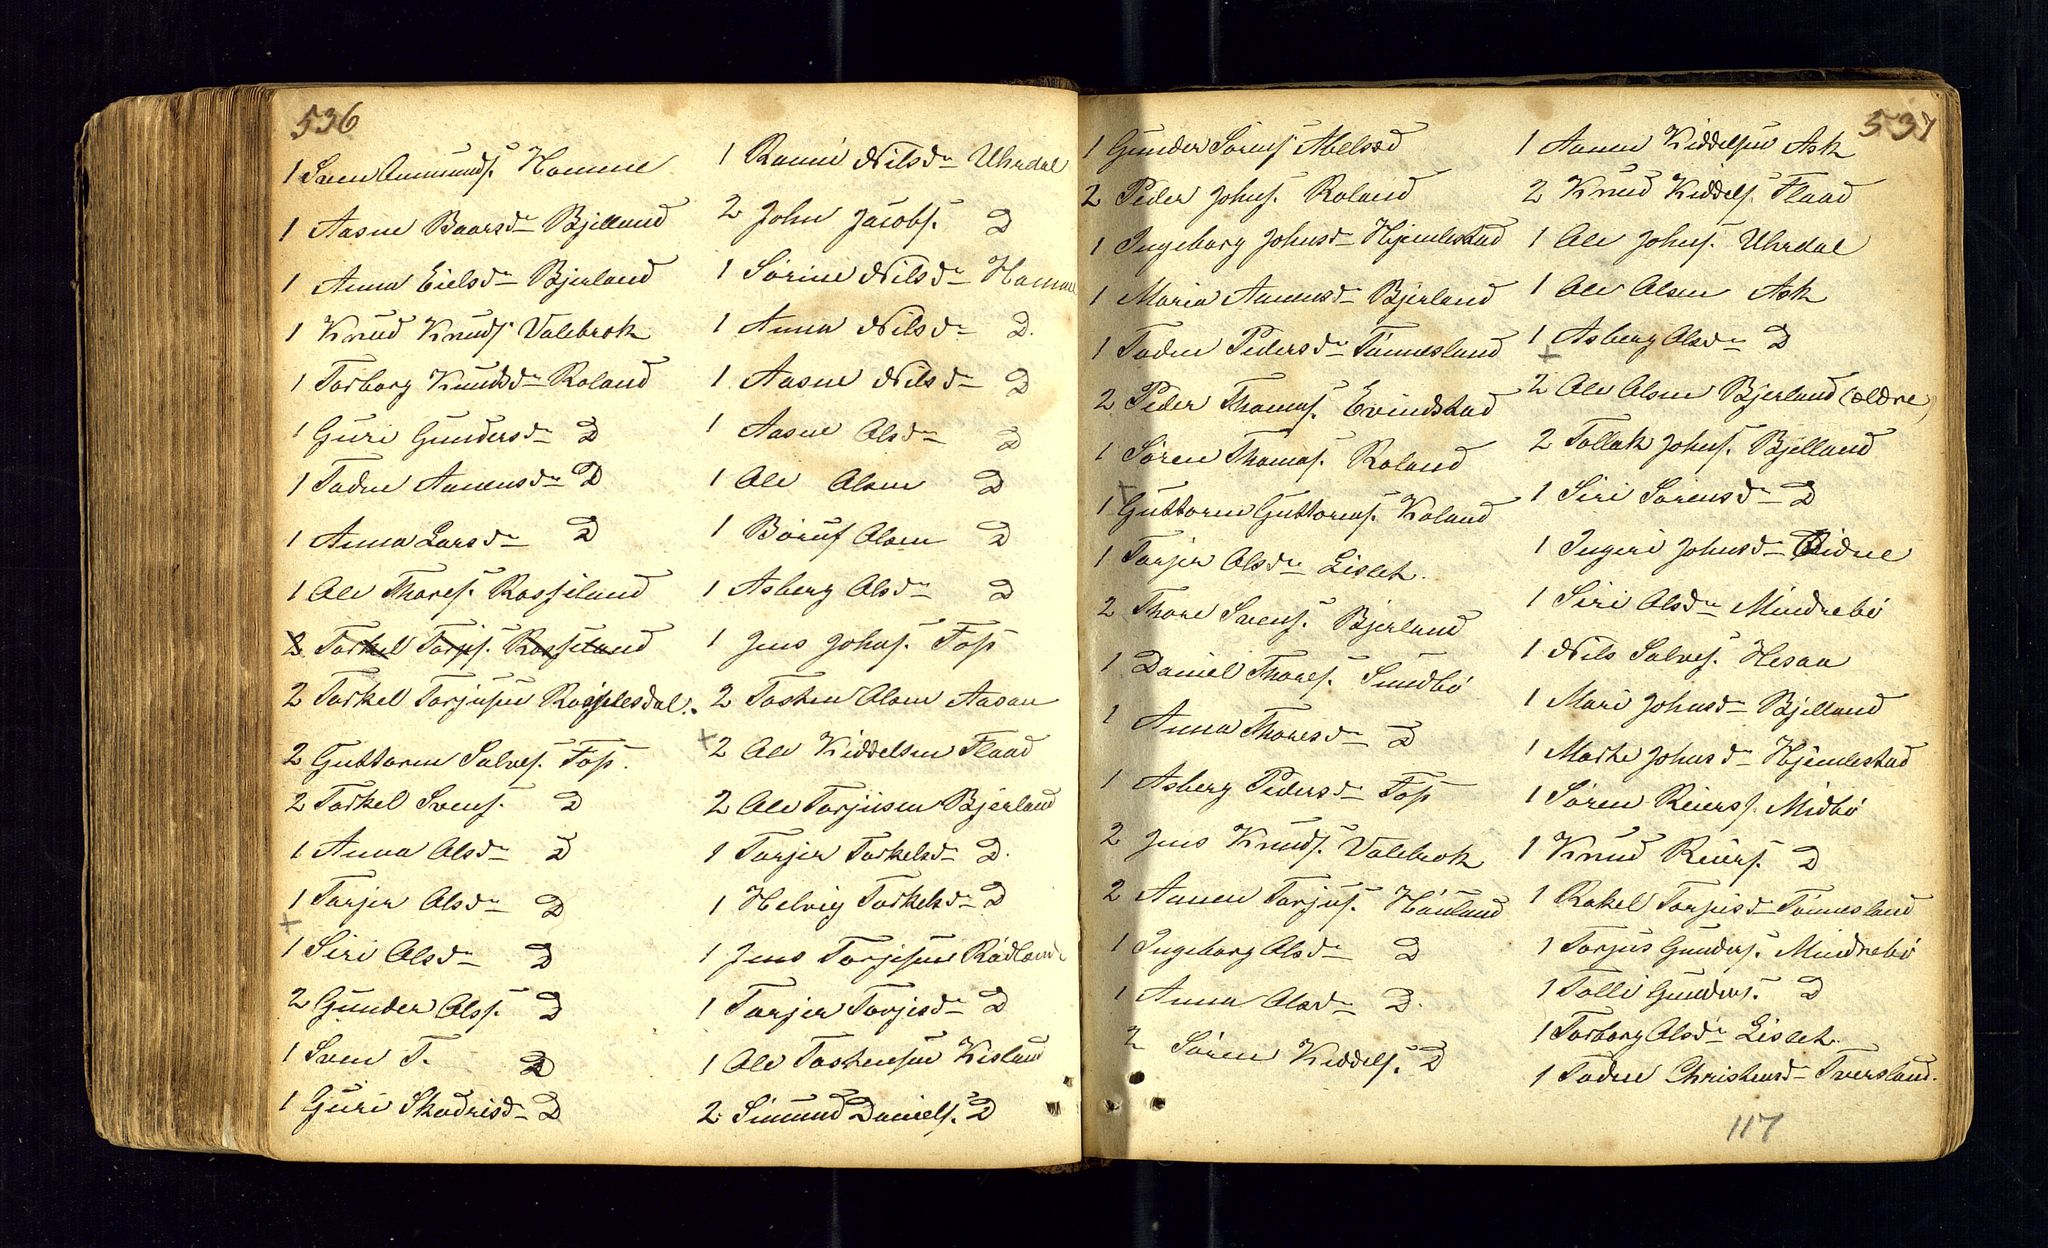 536
1 Sven Aanunds. Homme
1 Aasne Baarsdn Bjelland
1 Anna Eielsdn Bjerland
1 Knud Knuds. Valebrok
1 Torborg Knudsdn Roland
1 Guri Gundersdn D
1 Todne Aanensdn D
1 Anna Larsdn D
1 Ole Thores. Rosseland
2 Torkel Torjs. Rosseland
2 Torkel Torjusen Rosselesdal.
2 Guttorm Salves. Foss.
2 Torkel Svens. D
1 Anna Olsdn D
1 Torjer Olsdn D
1 Siri Olsdn D
2 Gunder Olss. D
1 Sven T. D
1 Guri Skadrisdn D
1 Ranni Nilsdn Uhrdal
2 John Jacobs. D
1 Sørine Nilsdn Homme
1 Anna Nilsdn D.
1 Aasne Nilsdn D
1 Aasne Olsdn D
1 Ole Olsen D
1 Børuf Olsen D
1 Asberg Olsdn D
1 Jens Johns. Foss
2 Tosten Olsen Aasan
+ 2 Ole Kiddelsen Flaad
2 Ole Torjusen Bjerland
1 Torjer Torkelsdn D.
1 Helvig Torkelsdn D
1 Jens Torjusen Rødland
1 Torjer Torjesdn D
1 Ole Tostensen Kisland
2 Simund Daniels. D
537
1 Gunder Sørens. Abelsød
2 Peder Johns. Roland
1 Ingeborg Johnsdn Hjemlestad
1 Maria Aanensdn Bjerland
1 Todne Pedersdn Tønnesland
2 Peder Thomas. Evindstad
1 Søren Thomas. Roland
1 Guttorm Guttorms. Roland
1 Torjer Olsdn Lisleh.
2 Thore Svens. Bjerland
1 Daniel Thores. Sundbø
1 Anna Thoresdn D
1 Asberg Pedersdn Foss
2 Jens Knuds. Valebrok
2 Aanen Torjus. Hønlund
1 Ingeborg Olsdn D
1 Anna Olsdn D.
2 Søren Kiddels. D
1 Aanen Kiddelsen Ask
2 Knud Kiddels. Flaad
1 Ole Johns. Uhrdal
1 Ole Olsen Ask
1 Asberg Olsdn D
2 Ole Olsen Bjerland (ældre)
2 Tollak Johns. Bjelland
1 Siri Sørensdn D
1 Ingeri Johnsdn Eidne
1 Siri Olsdn Mindrebø
1 Nils Salves. Hesaa
1 Mari Johnsdn Bjelland
1 Marte Johnsdn Hjemlestad
1 Søren Reiers. Midbø
1 Knud Reiers. D
1 Rakel Torjusdn Tønnesland
1 Torjus Gunders. Mindrebø
1 Tolli Gunders. D
1 Torborg Olsdn Lisleh.
1 Todne Christensdn Tversland.
117